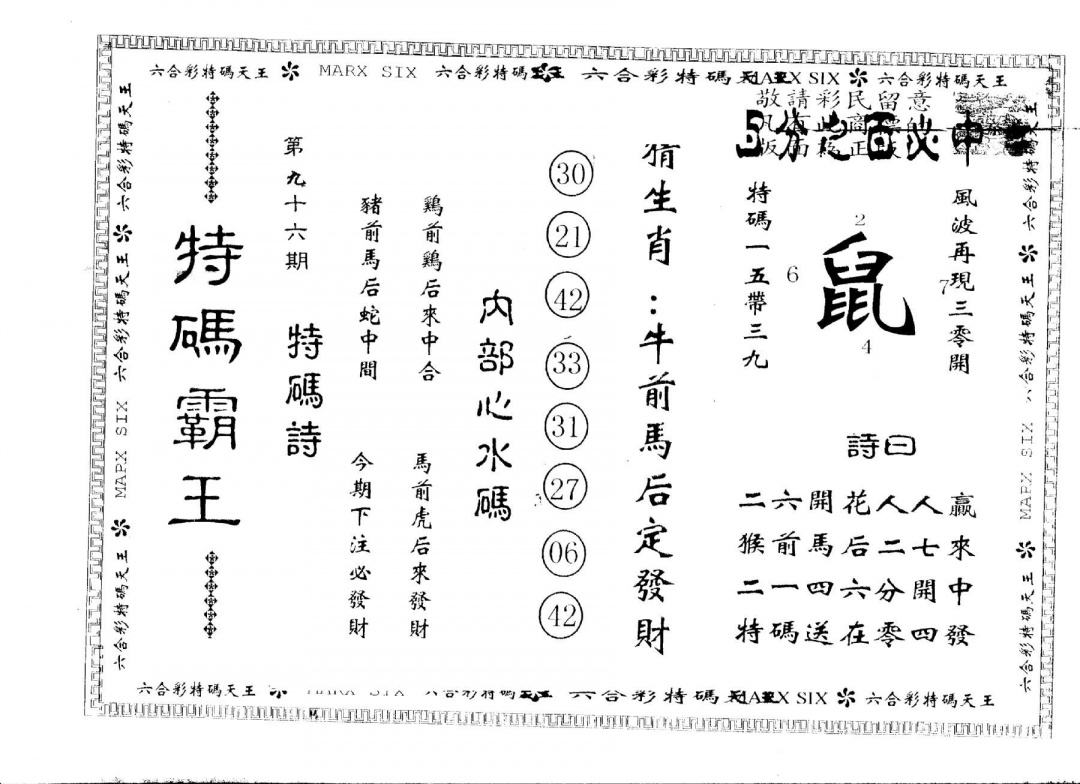 六合彩特碼天王 MARX SIX 六合彩特碼天王 六合彩特碼天王 MARX SIX 六合彩特碼天王
敬請彩民留意
必中
風波再現三零開
鼠
2
6
7
4
特碼一五帶三九
詩曰
贏來中發
人七開四
人二分零
花后六在
開馬四送
六前一碼
二猴二特
猜生肖：牛前馬后定發財
30
21
42
33
31
27
06
42
內部心水碼
鷄前鷄后來中合
馬前虎后來發財
豬前馬后蛇中間
今期下注必發財
第九十六期
特碼詩
特碼霸王
六合彩特碼天王 MARX SIX 六合彩特碼天王 六合彩特碼天王
六合彩特碼天王 六合彩特碼天王 MARX SIX 六合彩特碼天王
六合彩特碼天王 六合彩特碼 MARX SIX 六合彩特碼天王